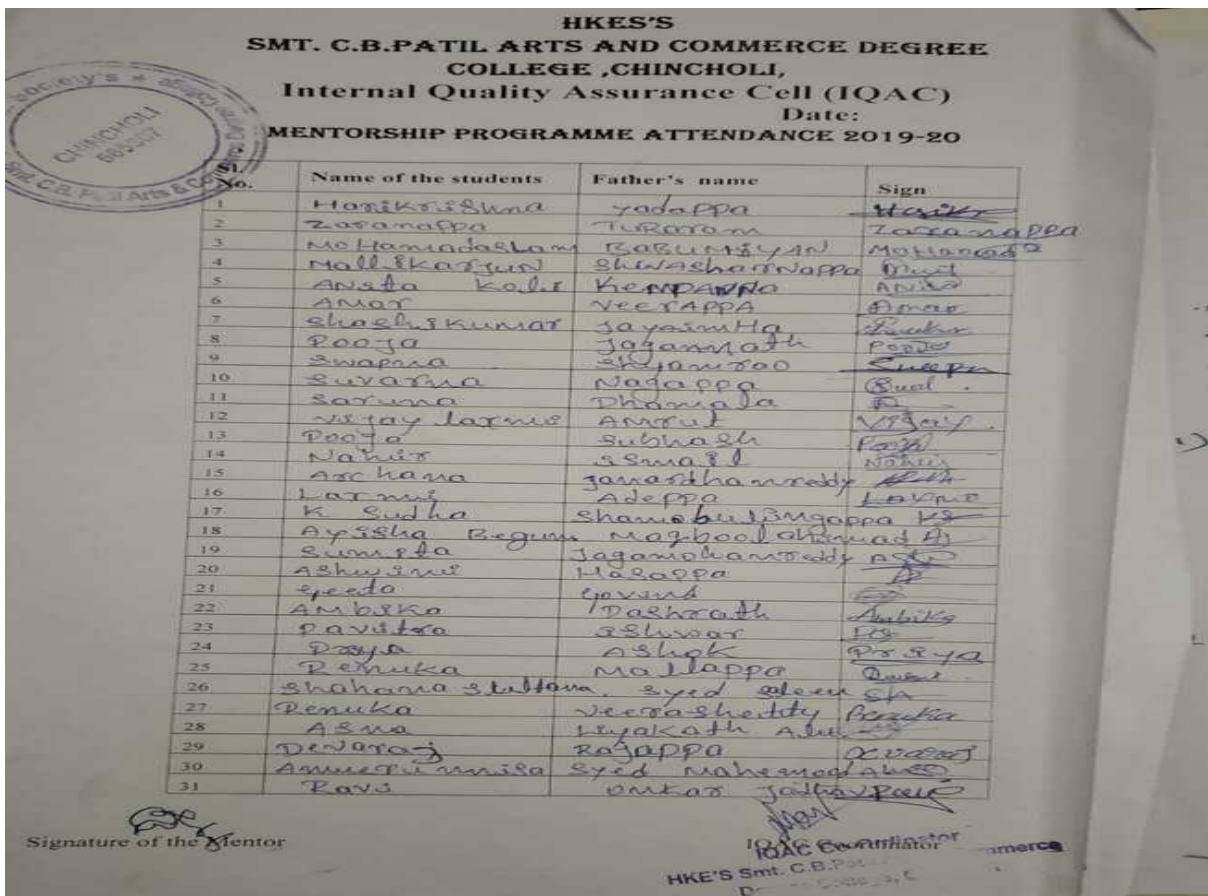 HKES'S
SMT. C.B.PATIL ARTS AND COMMERCE DEGREE
COLLEGE ,CHINCHOLI,
Internal Quality Assurance Cell (IQAC)
Date:
MENTORSHIP PROGRAMME ATTENDANCE 2019-20
society's * College
CHINCHOLI
585307
Smt. C.B. Patil Arts & Co
Sl. No. Name of the students Father's name Sign
1 Harikrishna Yadappa Harikr
2 Zaranappa Tukaram Zaranappa
3 MoHamadaslam BABUMIYAN MoHamad
4 Mallikarjun Shivasharnappa
5 Anita Koli Kempanna Anita
6 Amar Veerappa Amar
7 Shashikumar Jaysimha
8 Pooja Jagannath Pooja
9 Swapna Shyamrao Swapn
10 Suvarna Nagappa
11 Saruna Dhamala
12 Vijay laxmi Amrut Vijay.
13 Pooja Subhash Pooja
14 Nahir Ismail
15 Archana Janardhanreddy
16 Laxmi Adeppa Laxmi
17 K Sudha Shamobulingappa KS
18 Ayisha Begum Maqboolahamad
19 Sumita Jagamohanreddy
20 Ashwini Hasappa
21 Geeta Govind
22 Ambika Dashrath Ambika
23 Pavitra Ishwar
24 Priya Ashok Priya
25 Renuka Mallappa
26 Shahana Sultana. Syed saleem SA
27 Renuka Veerashettty Renuka
28 Asma Liyakath
29 Devaraj Rajappa Devaraj
30 Ameerunnisa Syed Mahemod
31 Ravi Omkar Jadhav Ravi
Signature of the Mentor
IQAC Coordinator
HKE'S Smt. C.B.